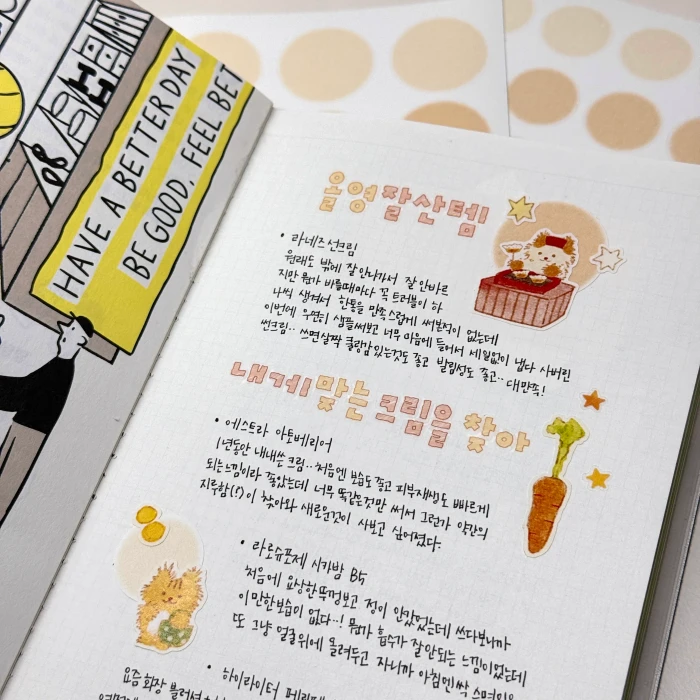 HAVE A BETTER DAY
BE GOOD, FEEL BET
올영잘산템
• 라네즈 선크림
원래도 밖에 잘 안나가서 잘 안바르
지만 뭔가 바를때마다 꼭 트러블이 하
나씩 생겨서 한통을 만족스럽게 써본적이 없는데
이번에 우연히 샘플써보고 너무 마음에 들어서 세일없이 냅다 사버린
썬크림.. 쓰면살짝 쿨링감있는것도 좋고 발림성도 좋고.. 대만족!
내게 맞는 크림을 찾아
• 에스트라 아토베리어
1년동안 내내쓴 크림.. 처음엔 보습도 좋고 피부재생도 빠르게
되는느낌이라 좋았는데 너무 똑같은것만 써서 그런가 약간의
지루함(?)이 찾아와 새로운것이 사보고 싶어졌다.
• 라로슈포제 시카밤 B5
처음에 요상한 뚜껑보고 정이 안갔었는데 쓰다보니까
이만한보습이 없다..! 뭔가 흡수가 잘안되는 느낌이었는데
또 그냥 얼굴위에 올려두고 자니까 아침엔싹
• 하이라이터
요즘 화장 블러셔